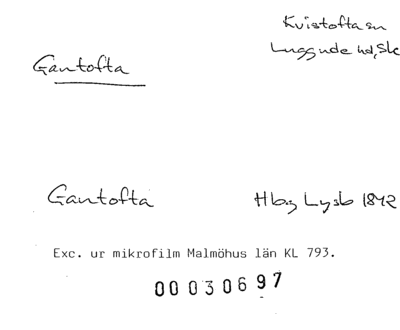 Kvistofta sn
Luggude hd, Sk
Gantofta
Gantofta
Hbg Lysb 1842
Exc. ur mikrofilm Malmöhus län KL 793.
00030697